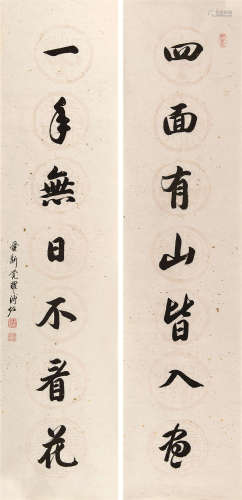 四面有山皆入畫
一年無日不看花
愛新覺羅溥佐